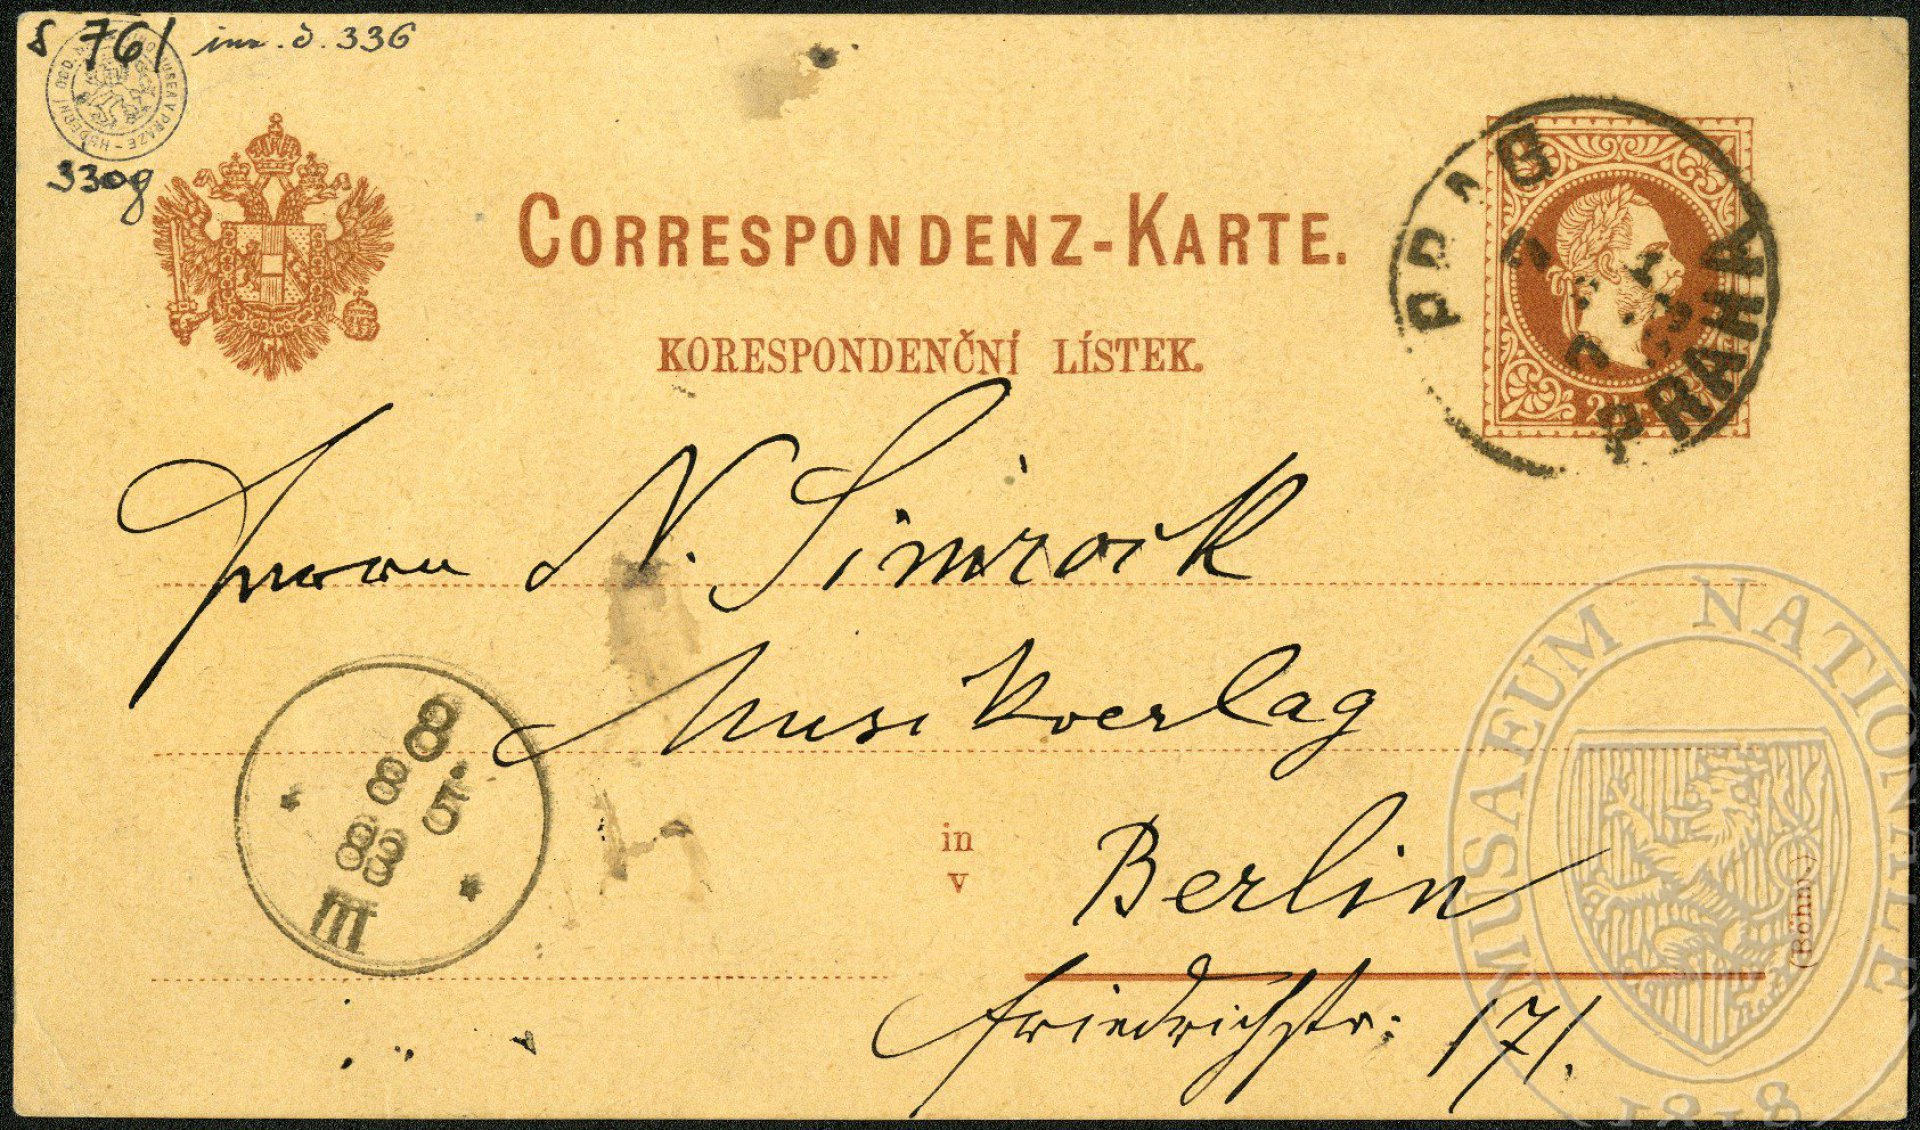 S 761 inv. č. 336
330g
CORRESPONDENZ-KARTE.
KORESPONDENČNÍ LÍSTEK.
PRAG
PRAHA
Herrn N. Simrock
Musikverlag
in
v
Berlin
Friedrichstr: 171.
8.5.
88
83
III
(Böhm.)
MUSAEUM NATIONALE
1818